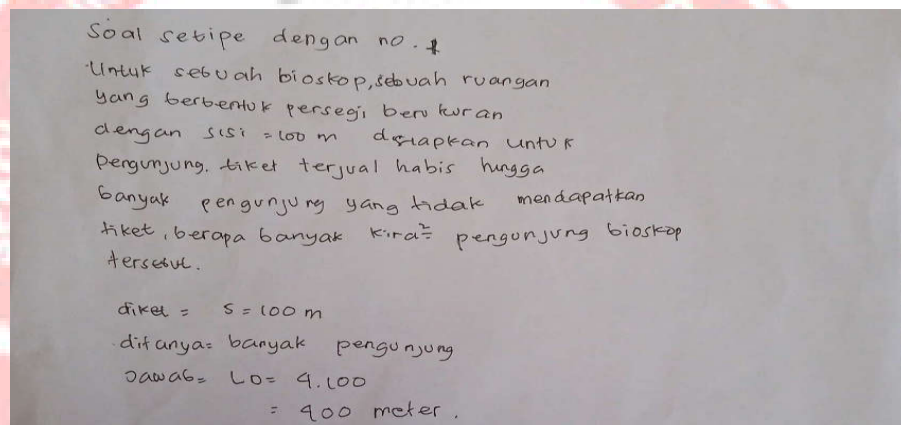 Soal setipe dengan no. 1
Untuk sebuah bioskop, sebuah ruangan
yang berbentuk persegi berukuran
dengan sisi = 100 m disiapkan untuk
Pengunjung. tiket terjual habis hingga
banyak pengunjung yang tidak mendapatkan
tiket, berapa banyak kira² pengunjung bioskop
tersebut.
diket = S = 100 m
ditanya = banyak pengunjung
Jawab = LO = 4.100
= 400 meter.